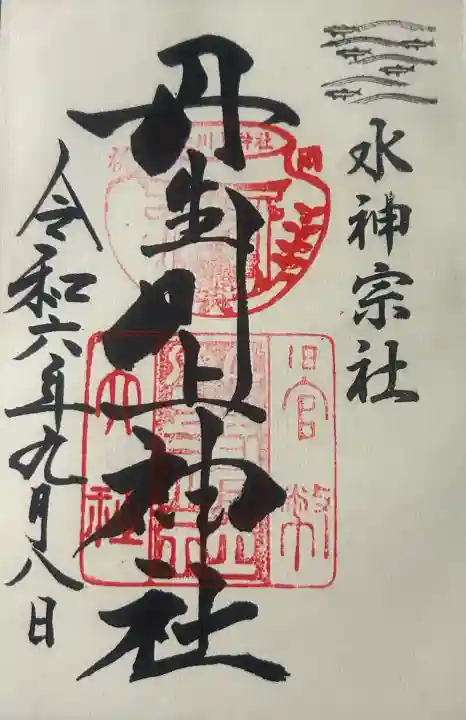 水神宗社
丹生川上神社
令和六年九月八日
川上神社
旧官幣
大社